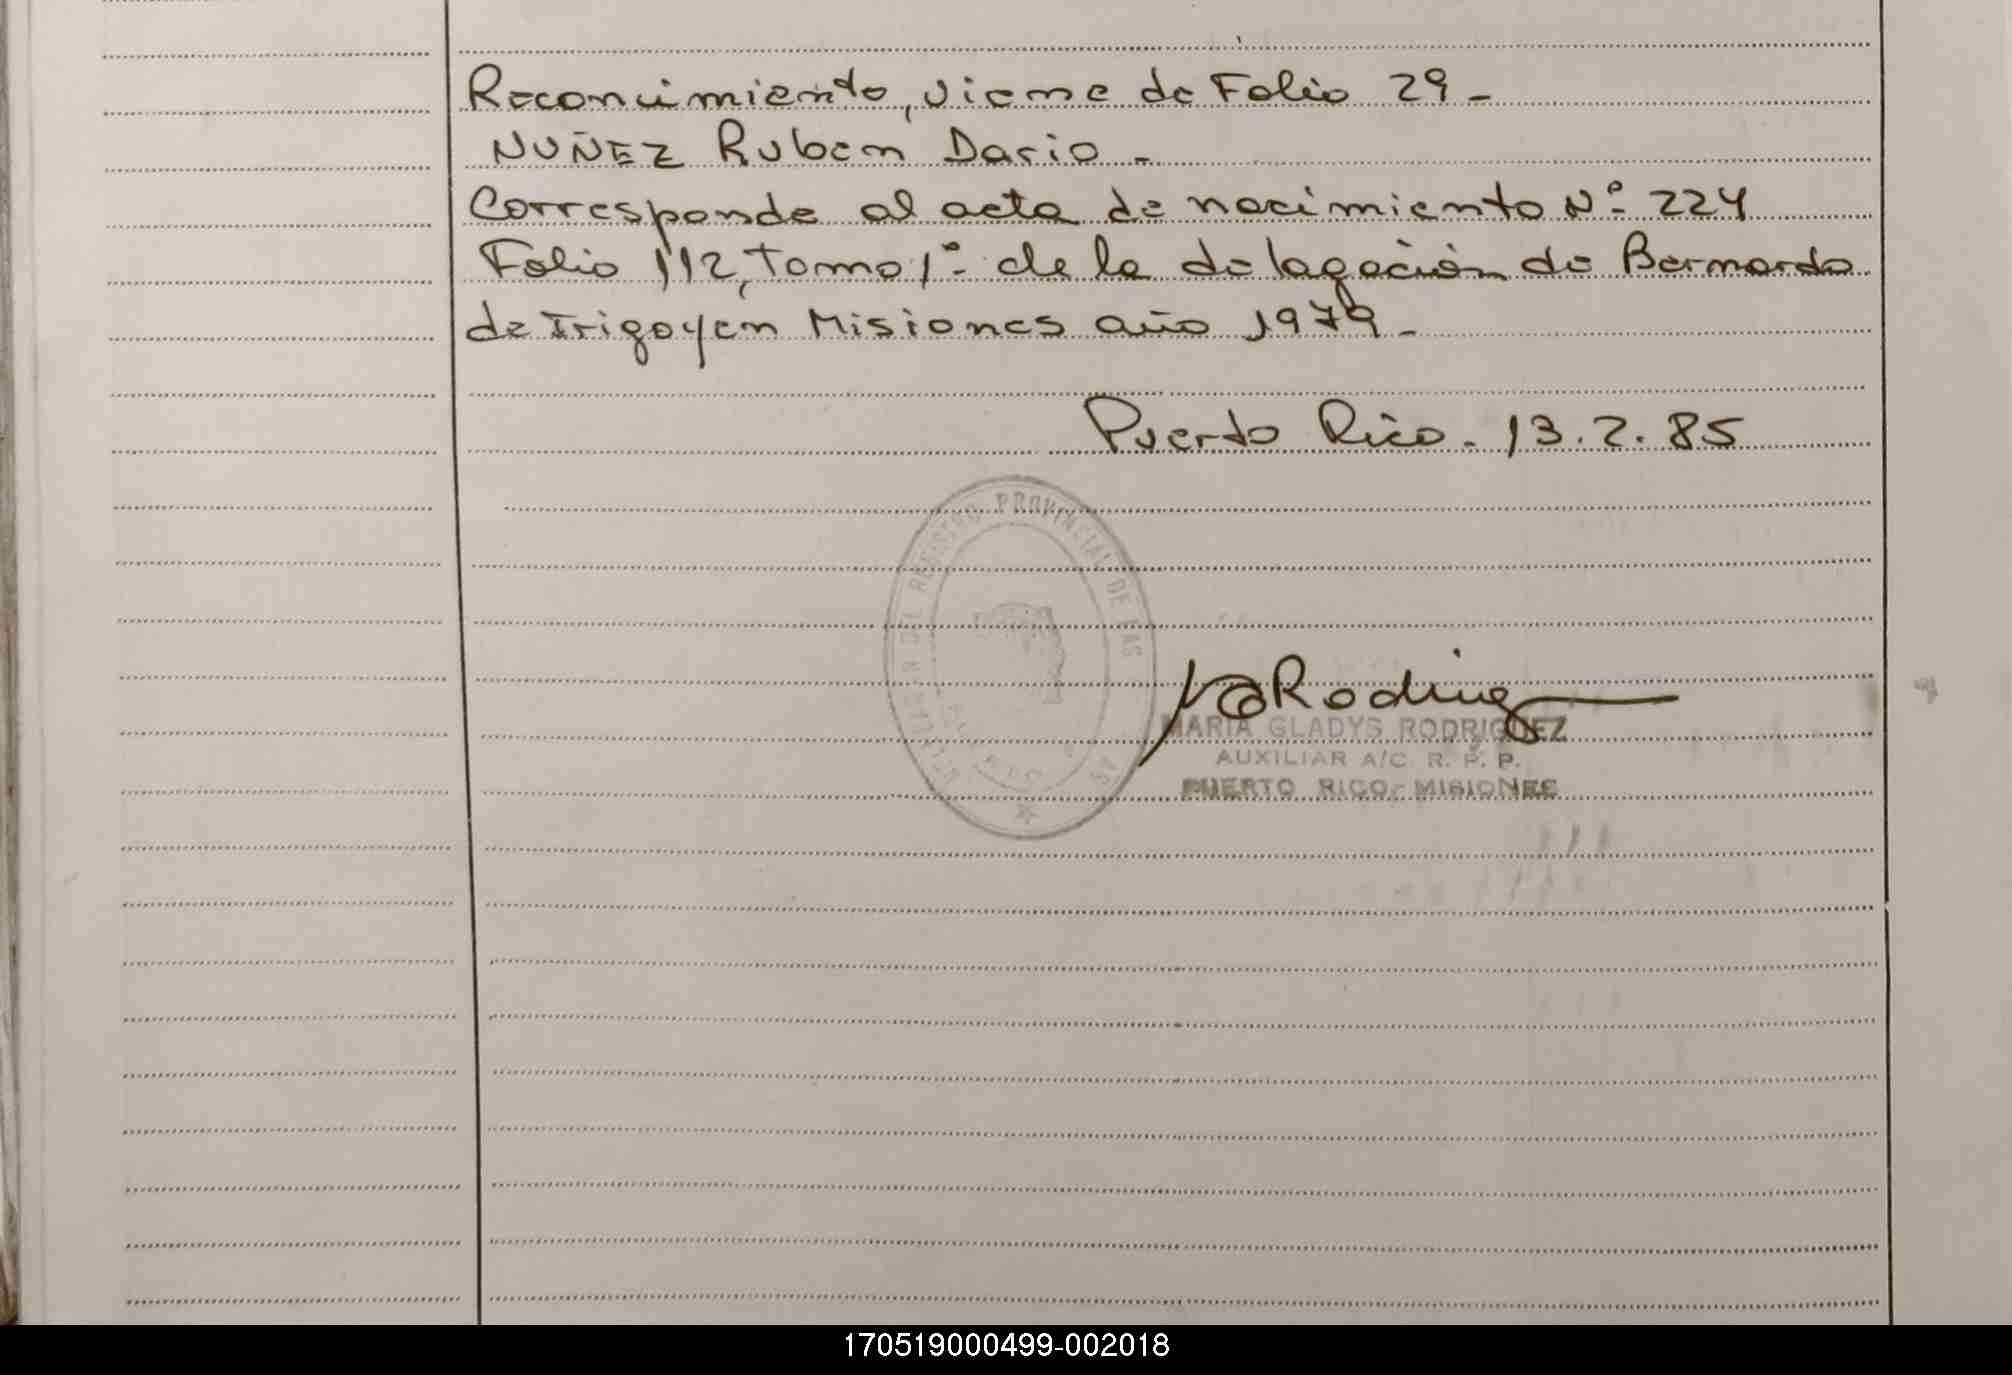 Reconicimiento, viene de Folio 29-
NUÑEZ Ruben Dario-
Corresponde al acta de nacimiento Nº 224
Folio 112, tomo 1º- de la delagación de Bernardo
de Irigoyen Misiones año 1979-
Puerto Rico-13.2.85
REGISTRO PROVINCIAL DE LAS
MARIA GLADYS RODRIGUEZ
AUXILIAR A/C R. P. P.
PUERTO RICO, MISIONES
170519000499-002018